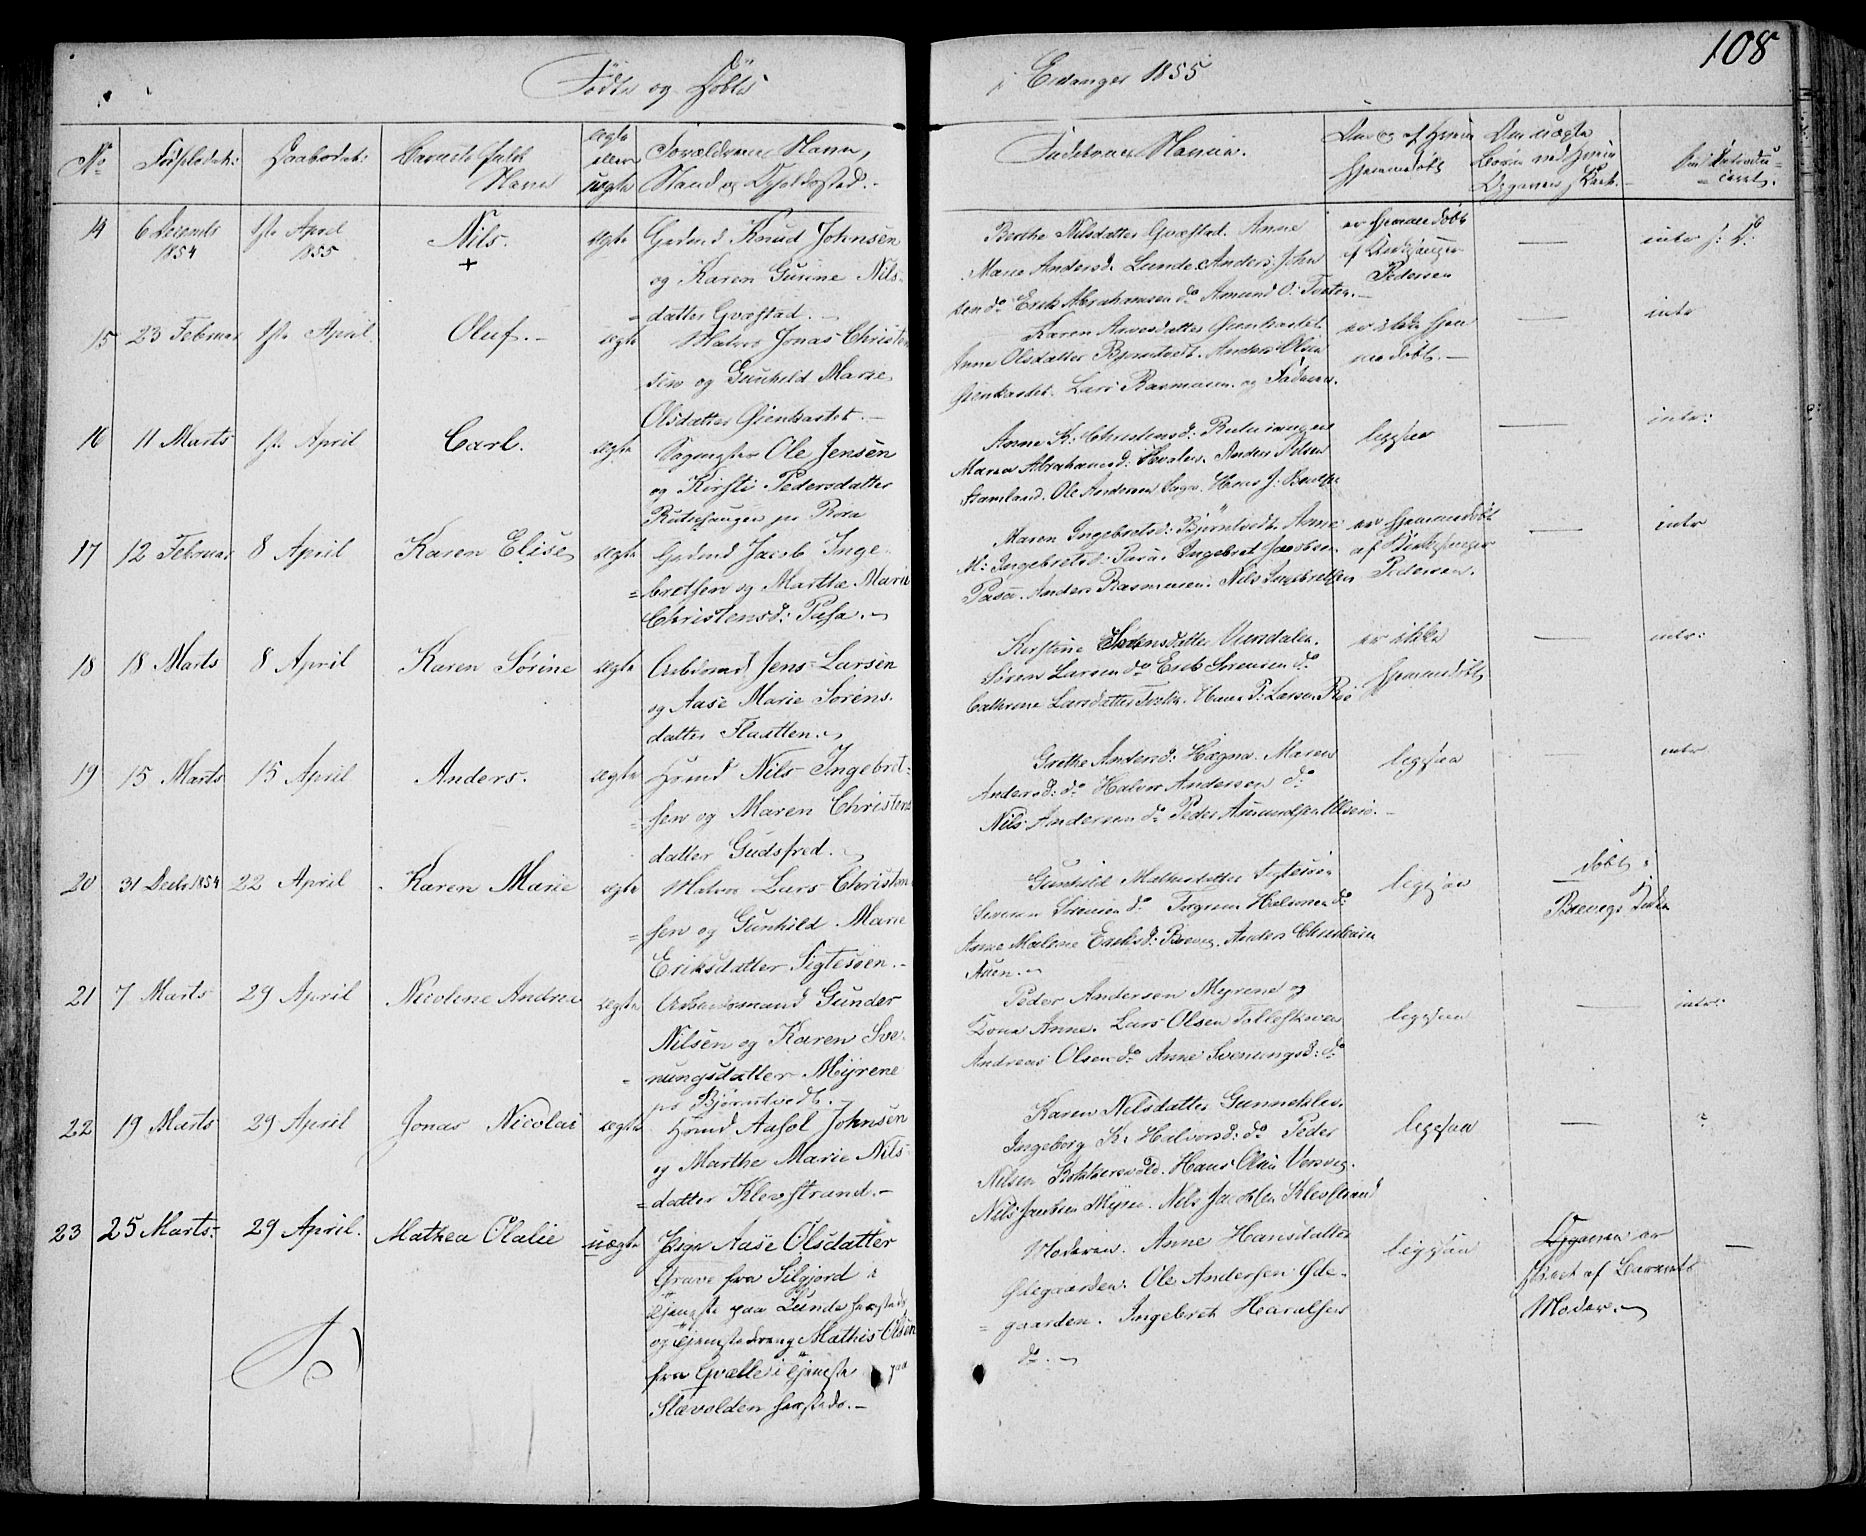 108
Födte og Döbte
i Eidanger 1855
No
Födselsdat:
Daabsdat:
Barnets fulde Navn
ægte eller uægte
Forældrenes Navn, Stand og Opholdssted.
Faddernes Navne.
Om og af hvem hjemmedöbt
14
6 Decemb 1854
1ste April 1855
Nils.
ægte
Gdmd Knud Johnsen
og Karen Gurine Nils-
datter Qvæstad.
Berthe Nilsdatter Qvæstad. Anne
Marie Andersd. Lunde. Anders John
sen do Erik Abrahamsen do Amund O: Traaten.
er hjemmedöbt
af Kirkesanger
Pedersen
15
23 Februar
1ste April
Oluf.
ægte
Matros Jonas Christen
sen og Gunhild Marie
Olsdatter Öienkastet.
Karen Aanesdatter Öienkastet
Anne Olsdatter Bjørntvedt. Anders Olsen
Öienkastet. Lars Rasmusen. og Faderen.
er ikke hjem
medöbt.
intr
16
11 Marts
1ste April
Carl.
ægte
Sagmester Ole Jensen
og Kirsti Pedersdatter
Anne K: Christensd:
Maren Abrahamsd: Anders Nilsen
ligesaa
intr:
17
12 Februar
8 April
Karen Elise
ægte
Gdmd Jacob Inge-
bretsen og Marthe Marie
Christensd: Pasa.
Maren Ingebretsd: Bjørntvedt. Anne
M: Ingebretsd: Pasa. Ingebret Jacobsen
Pasa. Anders Rasmusen. Nils Ingebretsen
er hjemmedöbt
af Kirkesanger
Pedersen.
intr
18
18 Marts
8 April
Karen Sörine
ægte
Arbdsmd Jens Larsen
og Aase Marie Sörens.
datter Flaatten.
Kirstine Sörensdatter
Sören Larsen do Erik Sörensen do
Cathrine Larsdatter Hans P: Larsen
er ikke
hjemmedöbt
intr:
19
15 Marts
15 April
Anders.
ægte
Hsmd Nils Ingebret-
sen og Maren Christens
datter Gudsfred.
Grethe Andersd: Hægna. Maren
Andersd: do Halvor Andersen do
Nils Andersen do Peder Amundsen
ligesaa
intr
20
31 Decbr 1854
22 April
Karen Marie
ægte
Matros Lars Christen
sen og Gunhild Marie
Eriksdatter Sigtesöen.
Gunhild Mathisdatter Sigtesöen
Sörensen do
Anne Malene Eriksd: Brevig. Anders Christensen
ligesaa
döbt i
Brevigs Kirke
21
7 Marts
29 April
Nicoline Andrea
ægte
Arbeidsmand Gunder
Nilsen og Karen Sve-
nungsdatter Myrene
ps Bjørntvedt.
Peder Andersen Myrene og
Kone Anne. Lars Olsen
Andreas Olsen do Anne Svenungsd: do
ligesaa
intr:
22
19 Marts
29 April
Jonas Nicolai
ægte
Hsmd Aasol Johnsen
og Marthe Marie Nils
datter Klevstrand.
Karen Nilsdatter Gunneklev.
Ingeborg K: Halvorsd: do Peder
Nilsen Hans Olsen Versvig.
Nils Jacobsen Myren. Nils Jacobsen Klevstrand
ligesaa
23
25 Marts
29 April.
Mathea Olalie
uægte
Pige Aase Olsdatter
Grave fra Silgjord i
tjeneste paa Lunde hersteds
og tjenestedreng Mathis Olsen
fra Qvælle i tjeneste paa
Slævolden hersteds.
Moderen. Anne Hansdatter
Ödegaarden. Ole Andersen Öde-
gaarden. Ingebret Haralsen
do.
ligesaa
Opgaven er
skeet af Barnets
Moder.